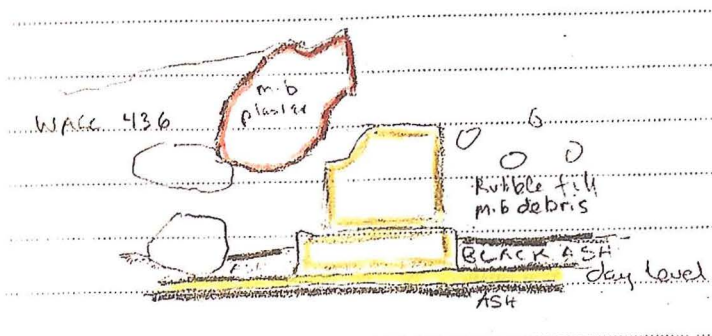 m.b
plaster
WALL 436
Rubble fill
m.b debris
BLACK ASH
clay level
ASH